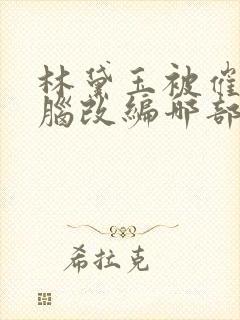 林黛玉被催
腦改編那部
希拉克